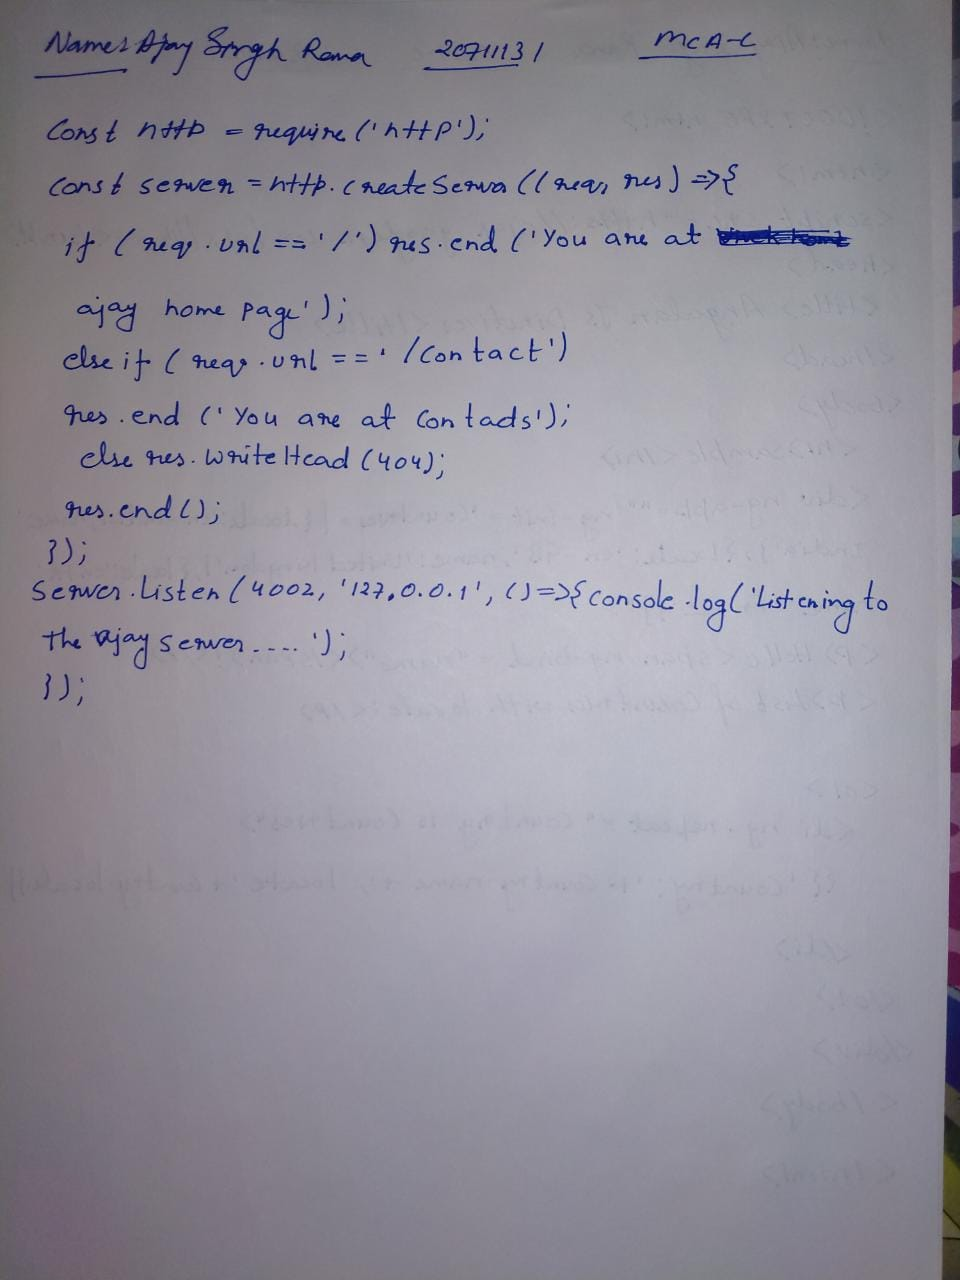 Name: Ajay Singh Rana 20711131 MCA-C
Const http = require('http');
Const server = http.createServer((req, res) => {
if (req.url == '/') res.end ('You are at
ajay home page');
else if (req.url == '/Contact')
res.end ('You are at Contads');
else res.writeHead (404);
res.end();
});
Server.Listen (4002, '127.0.0.1', () => { console.log('Listening to
the ajay server....');
});